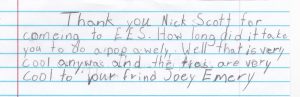 Thank you Nick Scott for
comeing to EES. How long did it take
you to do a pop a wely. Well that is very
cool anyway and the are very
cool to your frind Joey Emery